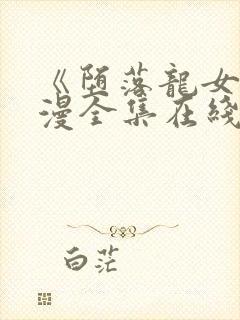 《堕落龍女
漫全集在綫
白茫